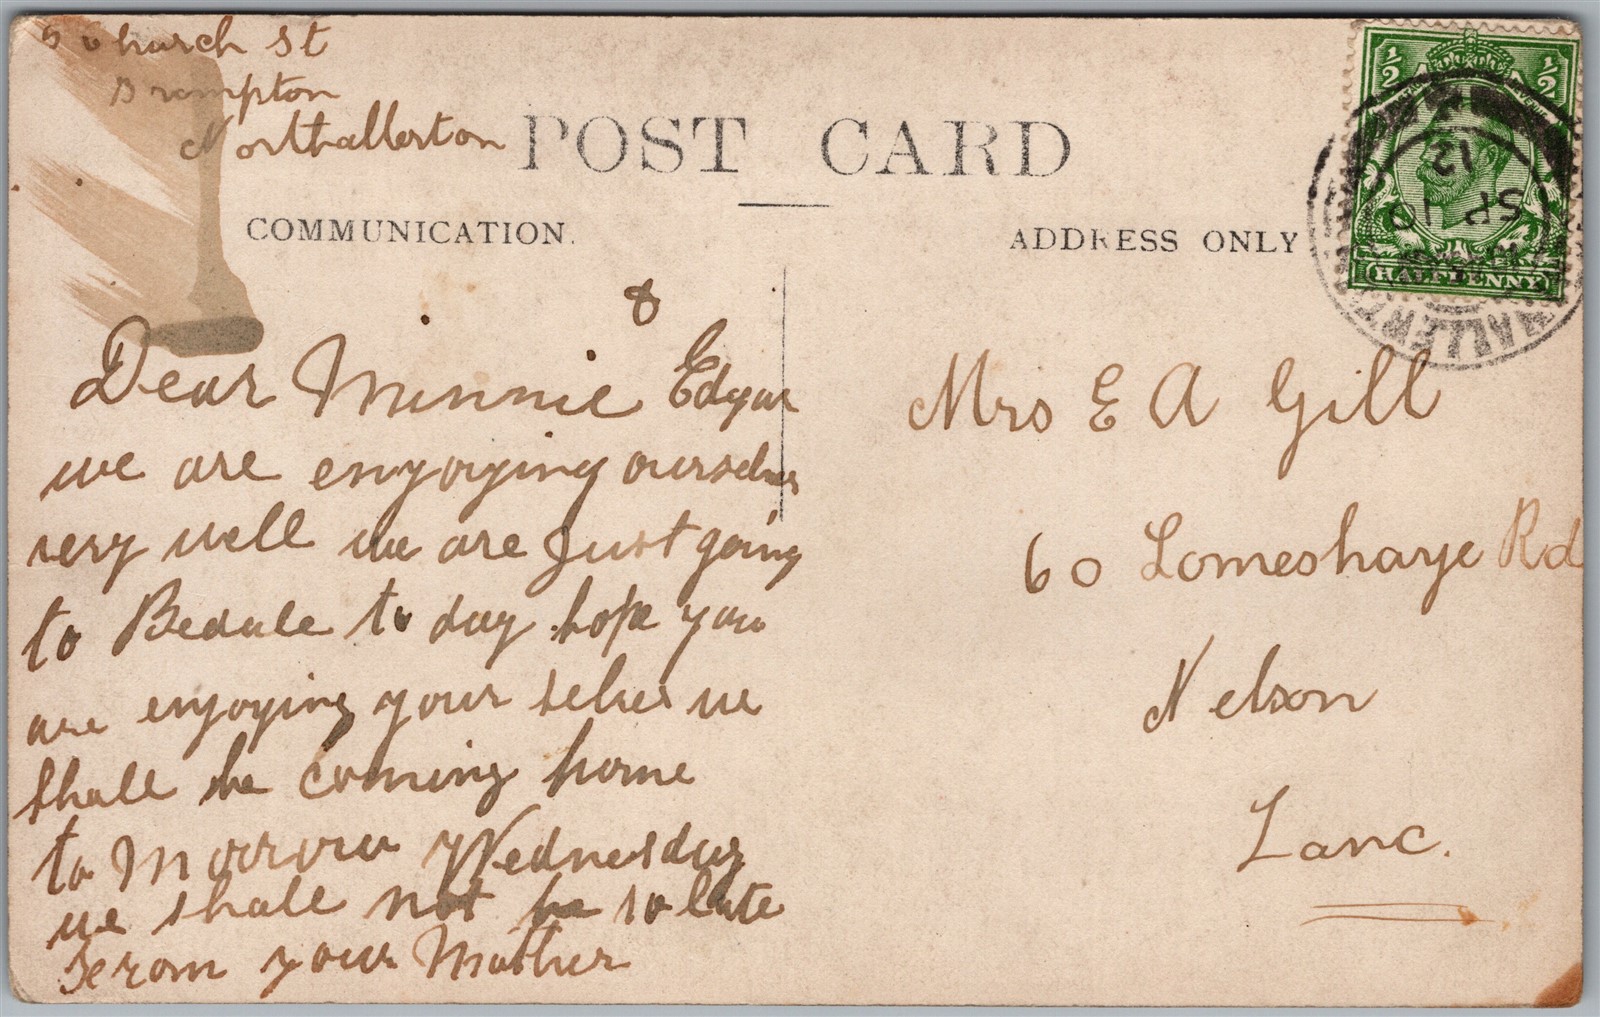 6 Church St
Brompton
Northallerton
POST CARD
COMMUNICATION.
ADDRESS ONLY
1/2 1/2
HALFPENNY
SP 10
12
Dear Minnie & Edgar
we are enyoying ourselves
very well we are Just going
to Bedale to day hope you
are enyoying your selves we
shall be coming home
to Morrow Wednesday
we shall not be so late
From your Mother
Mrs E A Gill
60 Lomeshaye Rd
Nelson
Lanc.